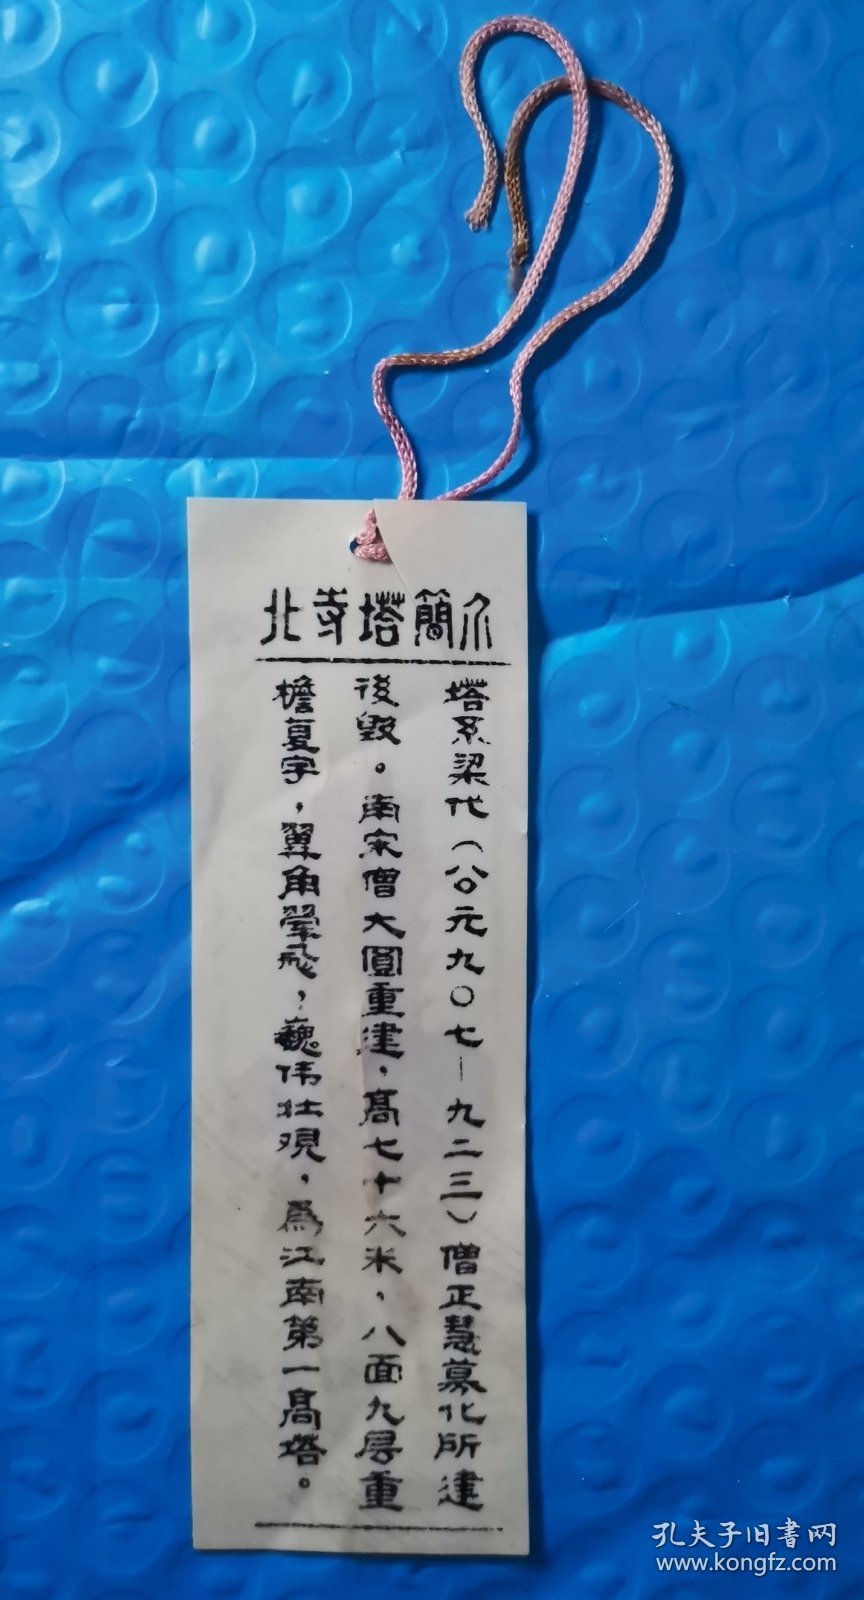 北寺塔簡介
塔系梁代（公元九〇七—九二三）僧正慧募化所建
後毀。南宋僧大圓重建，高七十六米，八面九层重
檐复宇，翼角翚飛，巍伟壮观，為江南第一高塔。
孔夫子旧書网
www.kongfz.com